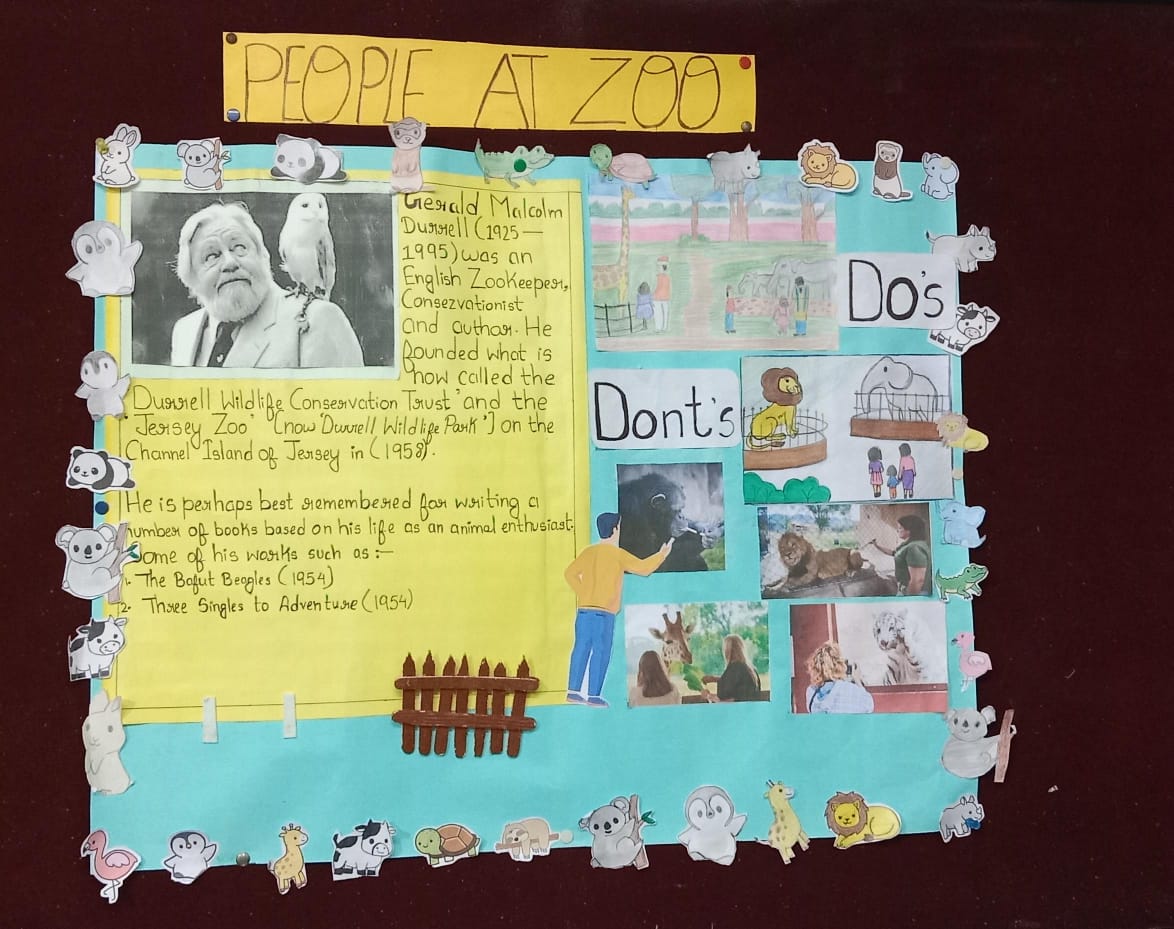 PEOPLE AT ZOO
Gerald Malcolm
Durrell (1925—
1995) was an
English Zookeeper,
Conservationist
and author. He
founded what is
now called the
Durrell Wildlife Conservation Trust' and the
'Jersey Zoo' [now 'Durrell Wildlife Park'] on the
Channel Island of Jersey in (1958).
He is perhaps best remembered for writing a
number of books based on his life as an animal enthusiast.
Some of his works such as :-
1. The Bafut Beagles (1954)
2. Three Singles to Adventure (1954)
Do's
Dont's